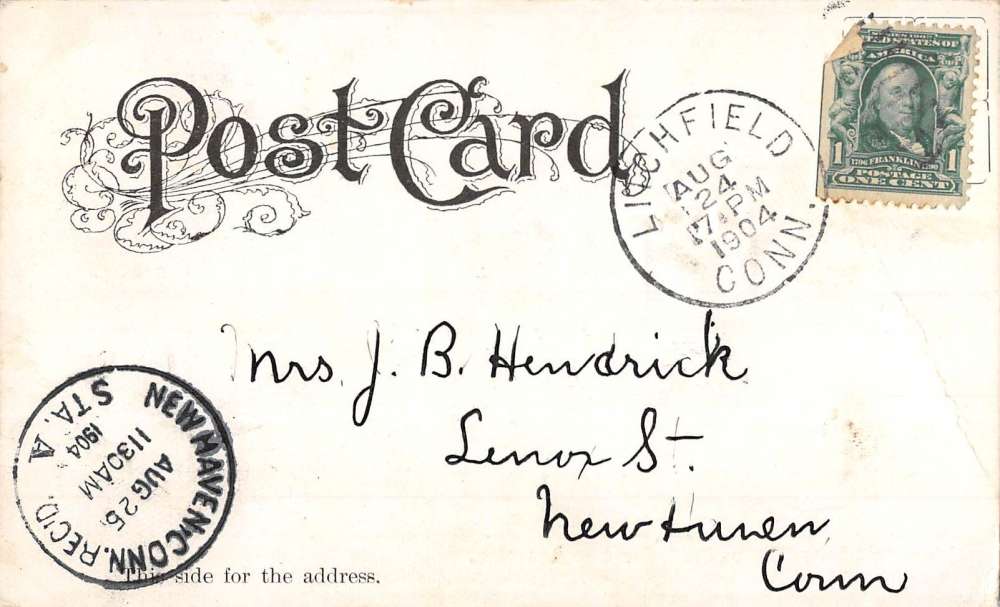 Post Card
LITCHFIELD
AUG
24
7-PM
1904
CONN.
SERIES 1902
UNITED STATES OF
AMERICA
1 1706 FRANKLIN 1790 1
POSTAGE
ONE CENT
Mrs. J. B. Hendrick
Lenox St.
New Haven,
Conn
NEW HAVEN, CONN. REC'D.
AUG 25.
1130AM
1904
STA. A
This side for the address.